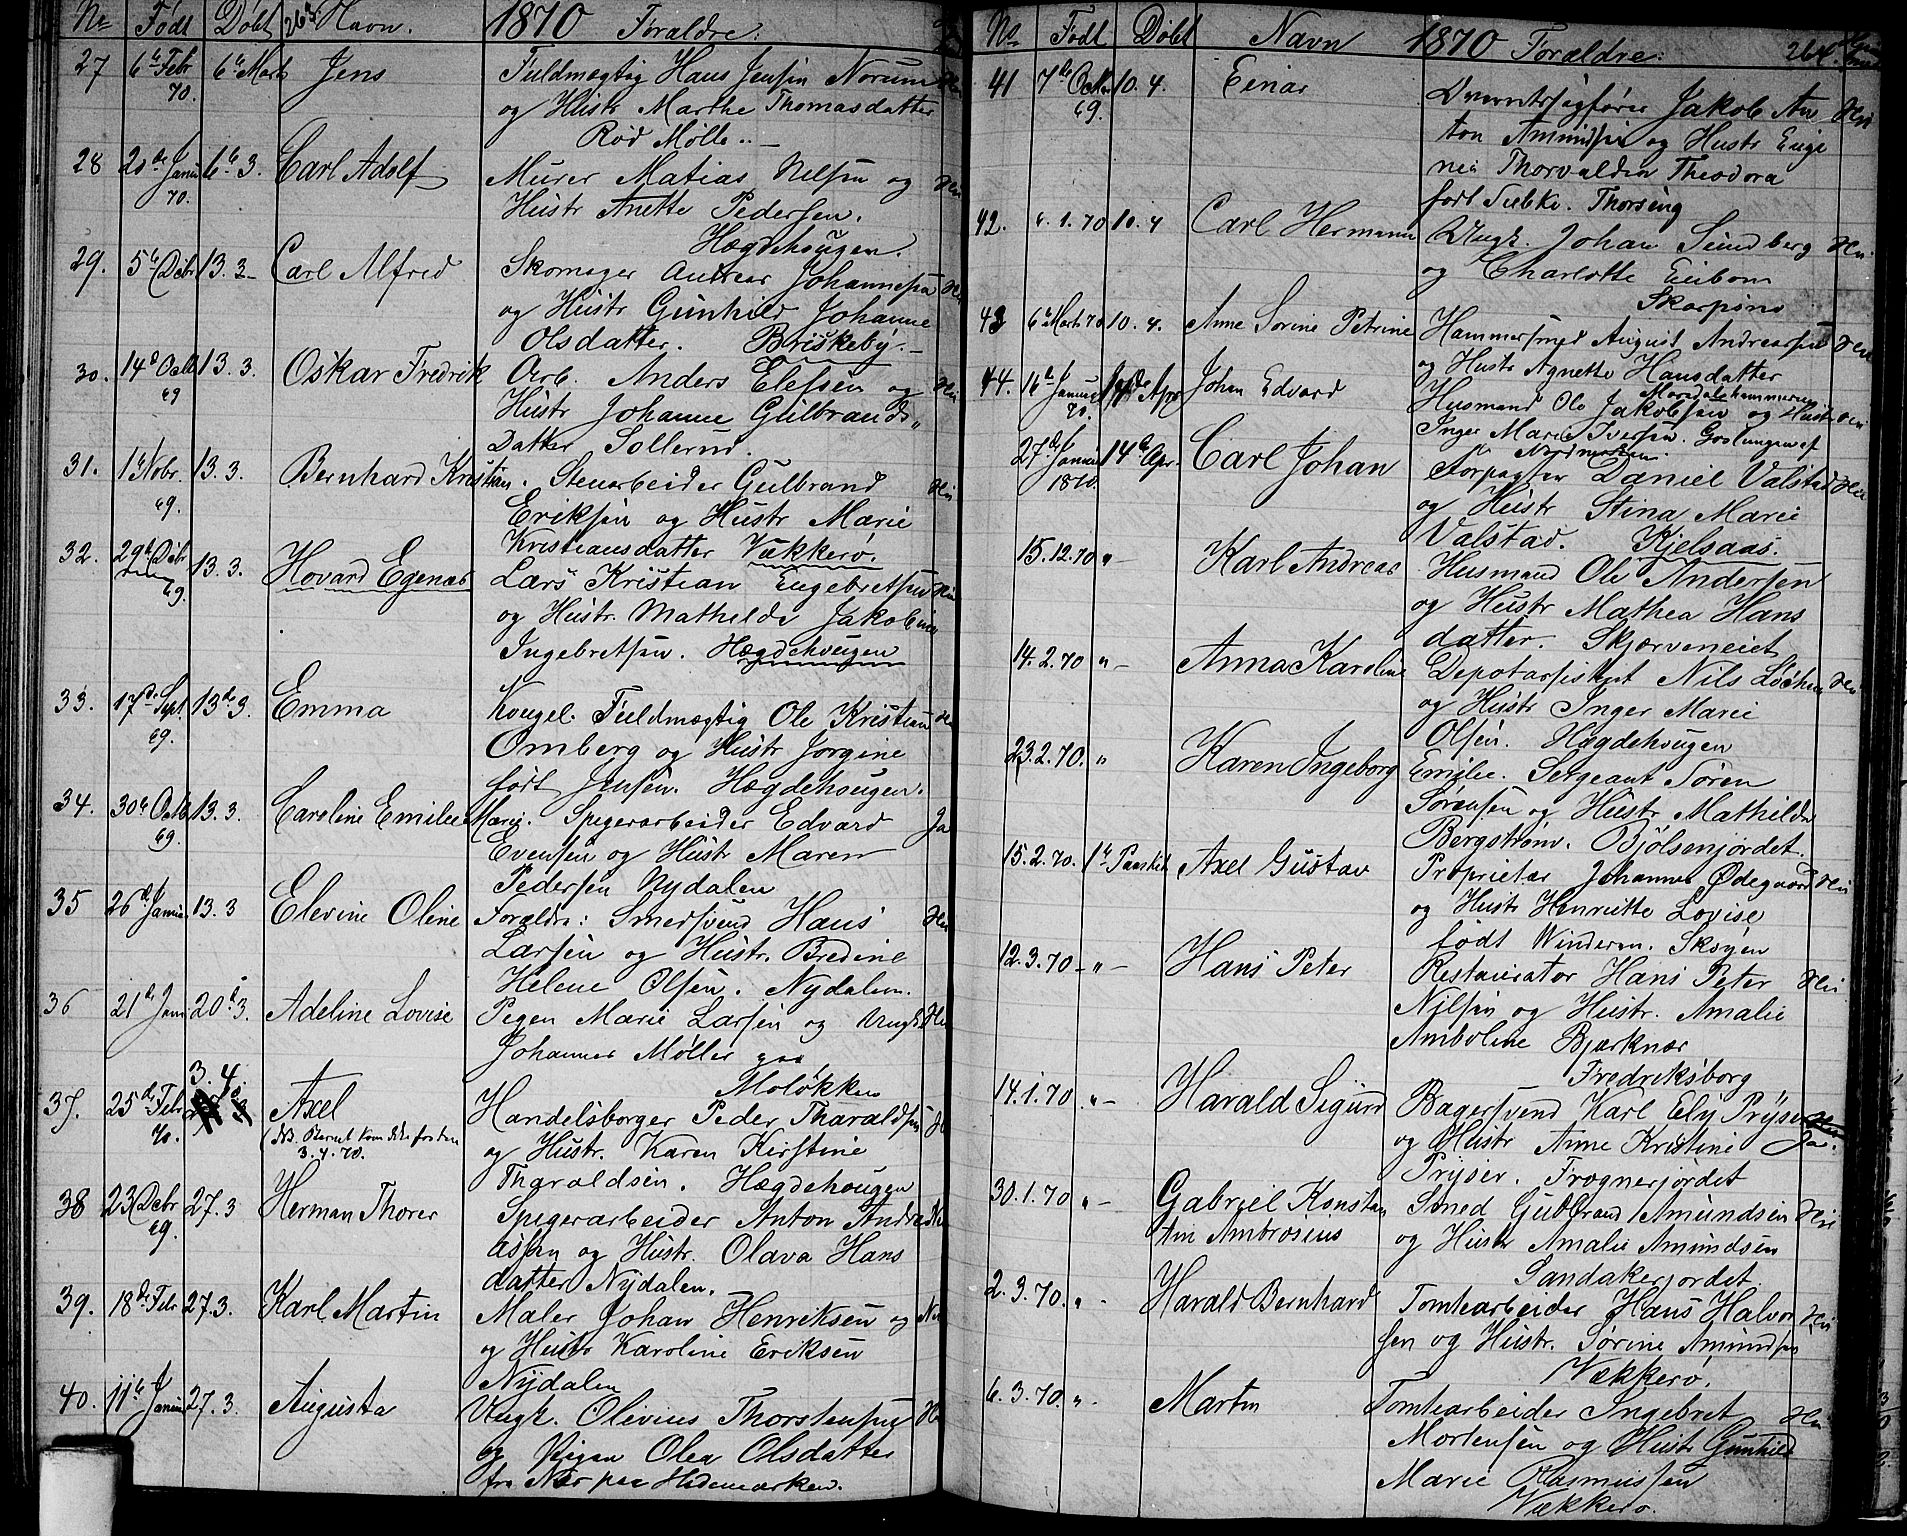 No Født Døbt 263 Navn. 1870 Forældre:
27 6te Febr 70. 6te Marts Jens Fuldmægtig Hans Jensen Norum
og Hustr Marthe Thomasdatter
Rød Mølle.
28 20de Janu 70. 6te 3. Carl Adolf Murer Matias Nelsen og
Hustr Anette Pedersen.
Hægdehougen.
29. 5te Dcbr 13. 3 Carl Alfred Skomager Andreas Johannesen
og Hustr Gunhild Johanne
Olsdatter. Briskeby.
30. 14de Octb 69 13. 3. Oskar Fredrik Arb. Anders Elefsen og
Hustr Johanne Gulbrands
Datter Sollerud.
31. 1te Nobr. 69. 13. 3. Bernhard Kristian. Stenarbeider Gulbrand
Eriksen og Hustr Marie
Kristiansdatter Vækkerø.
32. 29de Dcbr 69. 13. 3. Hovard Egenæs Lars Kristian Engebretsen
og Hustr. Mathilde Jakobine
Ingebretsen. Hægdehougen
33. 17de Sept. 69. 13de 3. Emma Kongel. Fuldmægtig Ole Kristian
Omberg og Hustr Jorgine
født Jensen. Hægdehougen.
34. 30te Octb 69. 13. 3. Caroline Emilie Marie. Spigerarbeider Edvard Ja
Evensen og Hustr Maren
Pedersen Nydalen
35 26de Janu. 13. 3 Elevine Oline Forældre: Smedsvend Hans
Larsen og Hustr. Bredine
Helene Olsen. Nydalen.
36 21de Janu 20de 3. Adeline Lovise Pigen Marie Larsen og Ungk.
Johannes Møller paa
Moløkken
37. 25de Febr 70. 3. 4. Axel Handelsborger Peder Tharaldsen
(NB. Barnet kom ikke før den og Hustr. Karen Kirstine
3. 4. 70. Tharaldsen. Hægdehougen
38 23 Dcbr 69. 27. 3 Herman Thorer Spigerarbeider Anton Andre
assen og Hustr. Olava Hans
datter Nydalen.
39. 18de Febr 27. 3. Karl Martin Maler Johan Henriksen og
og Hustr Karoline Eriksen
Nydalen
40. 11te Janu 27. 3. Augusta Ungk. Olivius Thorstensen
og Pigen Olea Olsdatter
fra Næs paa Hedemarken.
No Født Døbt Navn 1870 Forældre: 264.
41 7de Octbr 69. 10. 4. Einar Overretssagfører Jakob An
ton Amundsen og Hustr Euge
nia Thorvaldin Theodora
født Thorseng
42. 6. 1. 70 10. 4 Carl Hermann Ungk. Johan Sundberg
og Charlotte Eeibom
Skarpsno
43 6te Marts 70 10. 4. Anne Sorine Petrine Hammersmed August Andreassen
og Hustr Agnette Hansdatter
Maridalshammeren
44. 16de Januar 70. Apr Johan Edvard Husmand Ole Jakobsen og Hustr
Inger Marie Iversen.
Nordmarken.
27de Januar 1870. 14de Apr. Carl Johan Forpagter Daniel Valstad
og Hustr Stina Marie
Valstad. Kjelsaas.
15. 12. 70 " Karl Andreas Husmand Ole Andersen
og Hustr Mathea Hans
datter. Skjærveneiet
14. 2. 70 " Anna Karoline Depotarsistent Nils Løchen
og Hustr Inger Marie
Olsen. Hægdehougen
23. 2. 70. " Karen Ingeborg Emilie. Sergeant Søren
Sørensen og Hustr Mathilde
Bergstrøm. Bjølsenjordet.
15. 2. 70. 1te Paaskd. Axel Gustav Proprietær Johannes Ødegaard
og Hustr Henriette Lovise
født Winderen. Skøyen
12. 3. 70 " Hans Peter Restaurator Hans Peter
Nilsen og Hustr. Amalie
Amboline Bjerknæs
Fredriksborg
14. 1. 70. " Harald Sigurd Bagersvend Karl Ely Prÿser
og Hustr Anne Kristine Ja.
Prÿser. Frognerjordet
30. 1. 70 " Gabriel Konstan Smed Gulbrand Amundsen
tin Ambrosius og Hustr Amalie Amundsen
Sandakerjordet.
2. 3. 70. " Harald Bernhard Tomtearbeider Hans Halvor
sen og Hustr. Sorine Amundsen
Vækkerø.
6. 3. 70. " Martin Tomtearbeider Ingebret
Mortensen og Hustr Gunhild
Marie Rasmussen
Vækkerø.